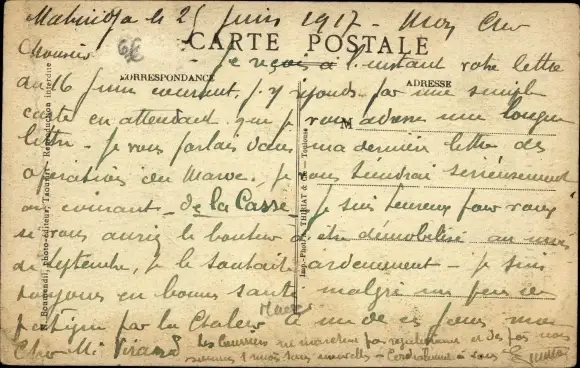 le 25 Juin 1917 - Mon Cher
CARTE POSTALE
Je reçois à l'instant votre lettre
CORRESPONDANCE
ADRESSE
du 16 Juin courant, j'y réponds par une simple
carte en attendant que je vous adresse une longue
M
lettre - je vous parlais dans ma dernière lettre des
opérations du Maroc, je vous tiendrai sérieusement
au courant - de la Casse, je suis heureux pour vous
si vous aurez le bonheur d'être démobilisé au mois
de Septembre, je le souhaite ardemment - je suis
toujours en bonne santé malgré un peu de
fatigue par la Chaleur
Maroc
Cher Mr
Les Courriers ne marchent pas régulièrement et des fois nous
sommes 1 mois sans nouvelles - Cordialement à vous
Bouhendil, photo-éditeur, Taourirt - Reproduction interdite
Imp.-Phot. THIRIAT & Cie - Toulouse